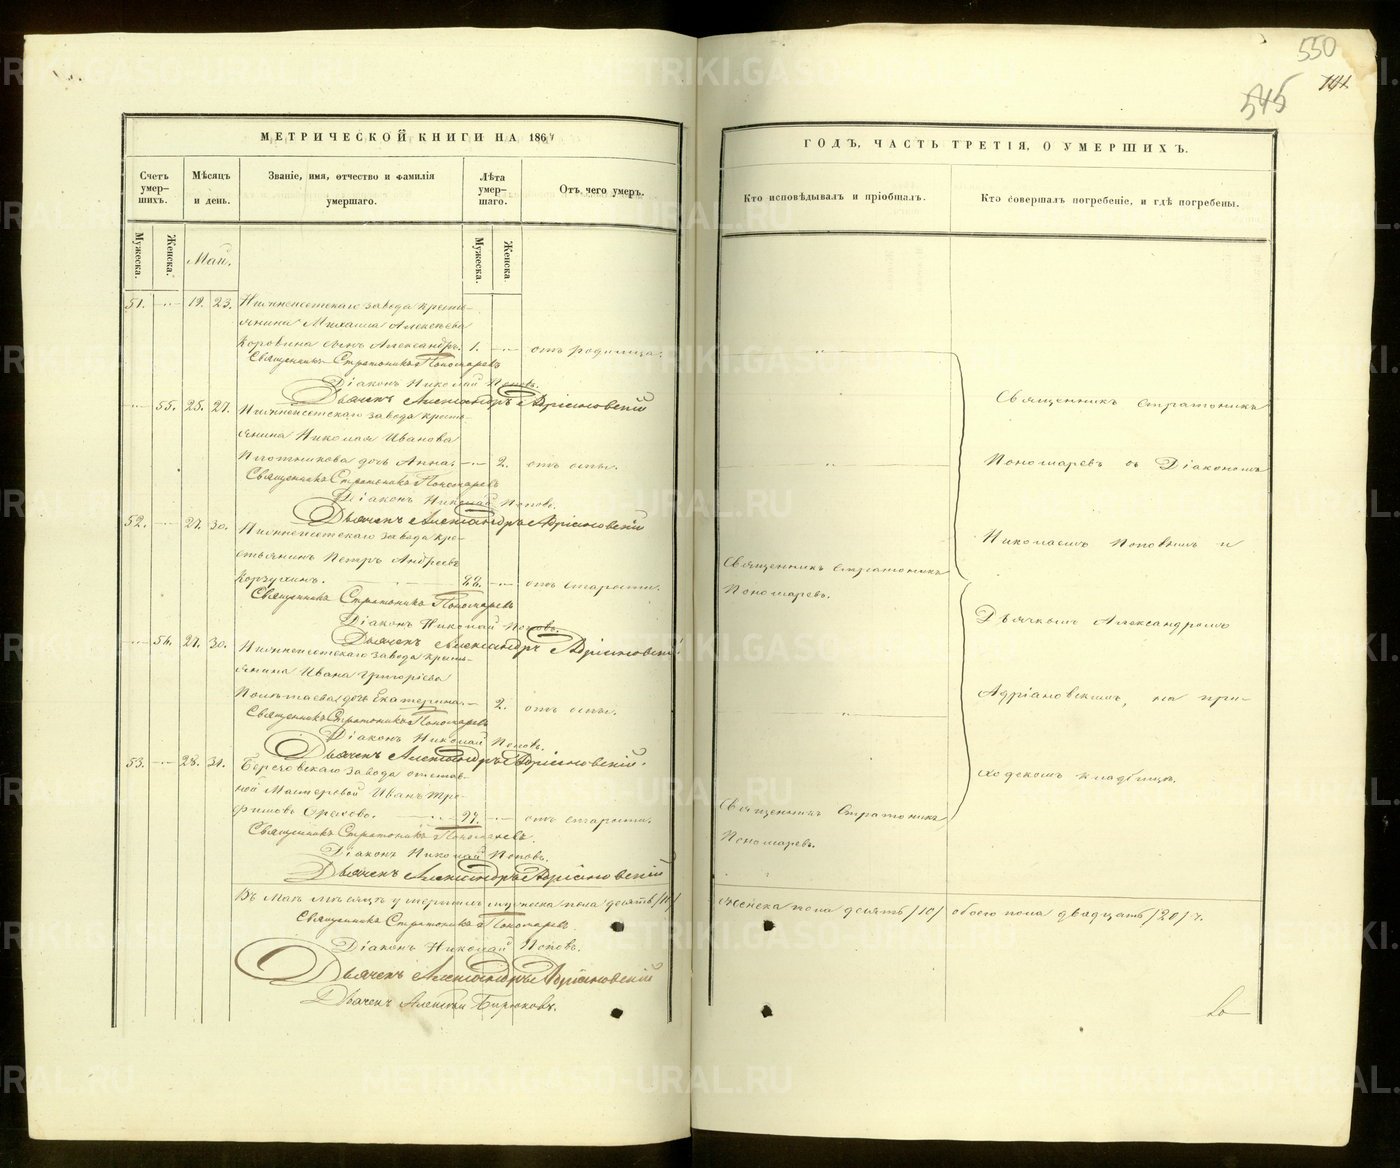 550
545
МЕТРИЧЕСКОЙ КНИГИ НА 1867
Счетъ умер-шихъ.
Мѣсяцъ и день.
Званіе, имя, отчество и фамилія умершаго.
Лѣта умер-шаго.
Отъ чего умеръ.
Мужеска. Женска. Май. Мужеска. Женска.
51. 19. 23. Нижнеисетскаго завода кресть-
янина Михаила Алексѣева
Коровина сынъ Александръ. 1. отъ родимца.
Священникъ Стратоникъ Пономаревъ
Діаконъ Николай Поповъ.
Дьячекъ Александръ Адріановскій
55. 25. 27. Нижнеисетскаго завода кресть-
янина Николая Иванова
Плотникова дочь Анна. 2. отъ оспы.
Священникъ Стратоникъ Пономаревъ
Діаконъ Николай Поповъ.
Дьячекъ Александръ Адріановскій
52. 27. 30. Нижнеисетскаго завода кре-
стьянинъ Петръ Андреевъ
Корзухинъ. 88. отъ старости.
Священникъ Стратоникъ Пономаревъ
Діаконъ Николай Поповъ.
Дьячекъ Александръ Адріановскій
56. 27. 30. Нижнеисетскаго завода кресть-
янина Ивана Григорьева
дочь Екатерина. 2. отъ оспы.
Священникъ Стратоникъ Пономаревъ
Діаконъ Николай Поповъ.
Дьячекъ Александръ Адріановскій.
53. 28. 31. Березовскаго завода отстав-
ной Мастеровой Иванъ Тро-
фимовъ Орѣховъ. отъ старости.
Священникъ Стратоникъ Пономаревъ.
Діаконъ Николай Поповъ.
Дьячекъ Александръ Адріановскій
Въ Маѣ мѣсяцѣ умерших мужеска пола десять /10/
Священникъ Стратоникъ Пономаревъ
Діаконъ Николай Поповъ.
Дьячекъ Александръ Адріановскій
Дьячекъ Алексѣй Бирюковъ.
ГОДЪ, ЧАСТЬ ТРЕТІЯ, О УМЕРШИХЪ.
Кто исповѣдывалъ и пріобщалъ.
Кто совершалъ погребеніе, и гдѣ погребены.
Священникъ Стратоникъ
Пономаревъ.
Священникъ Стратоникъ
Пономаревъ.
Священникъ Стратоникъ
Пономаревъ съ Діакономъ
Николаемъ Поповымъ и
Дьячкомъ Александромъ
Адріановскимъ, на при-
ходскомъ кладбищѣ.
женска пола десять /10/ обоего пола двадцать /20/ ч.
METRIKI.GASO-URAL.RU